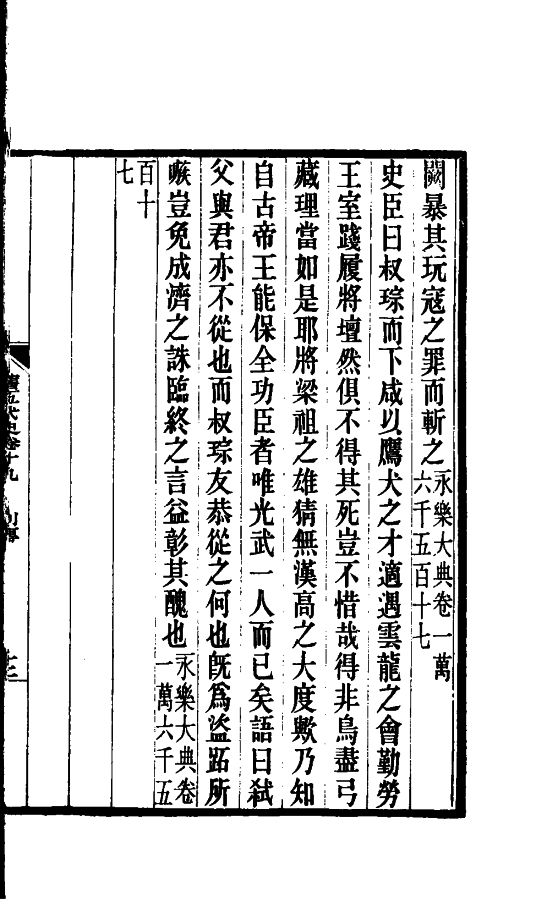 闕暴其玩寇之罪而斬之永樂大典卷一萬六千五百十七
史臣曰叔琮而下咸以鷹犬之才適遇雲龍之會勤勞
王室踐履將壇然俱不得其死豈不惜哉得非鳥盡弓
藏理當如是耶將梁祖之雄猜無漢高之大度歟乃知
自古帝王能保全功臣者唯光武一人而已矣語曰弑
父與君亦不從也而叔琮友恭從之何也旣爲盜跖所
嗾豈免成濟之誅臨終之言益彰其醜也永樂大典卷一萬六千五
百十七
舊五代史卷十九 列傳 十二